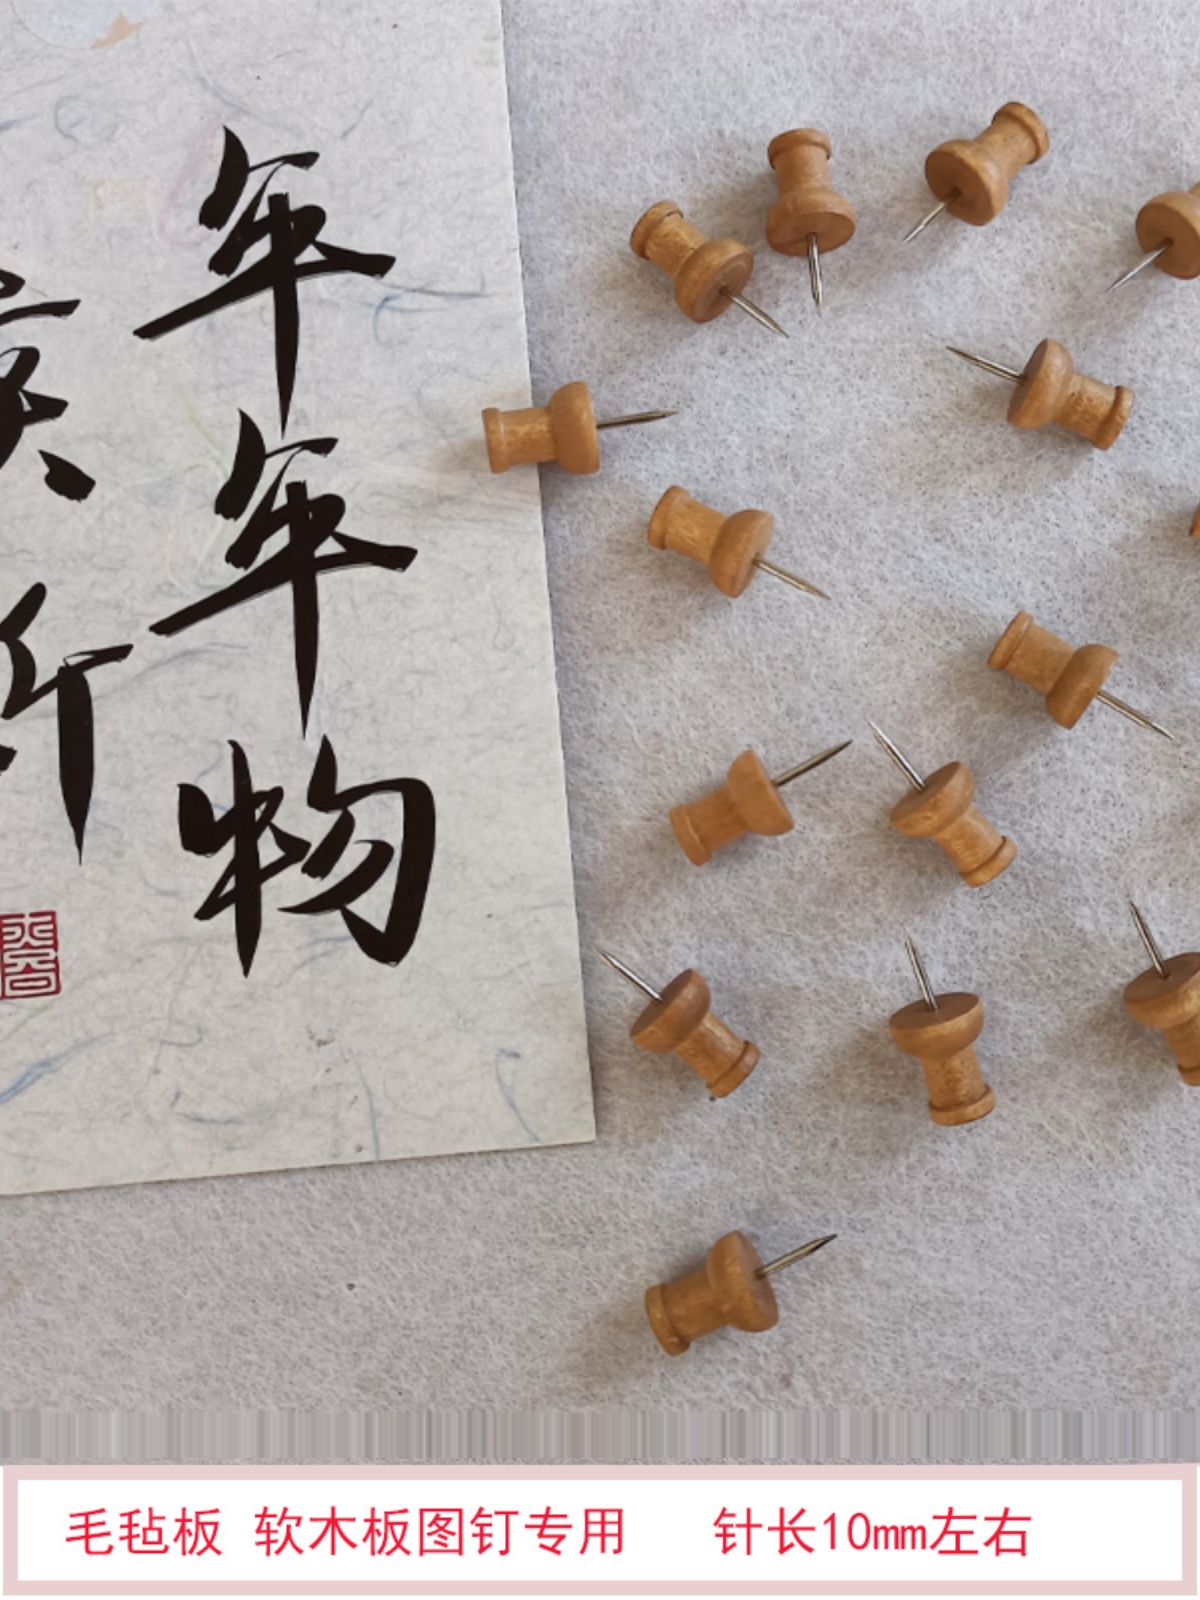 年年物
毛毡板 软木板图钉专用 针长10mm左右